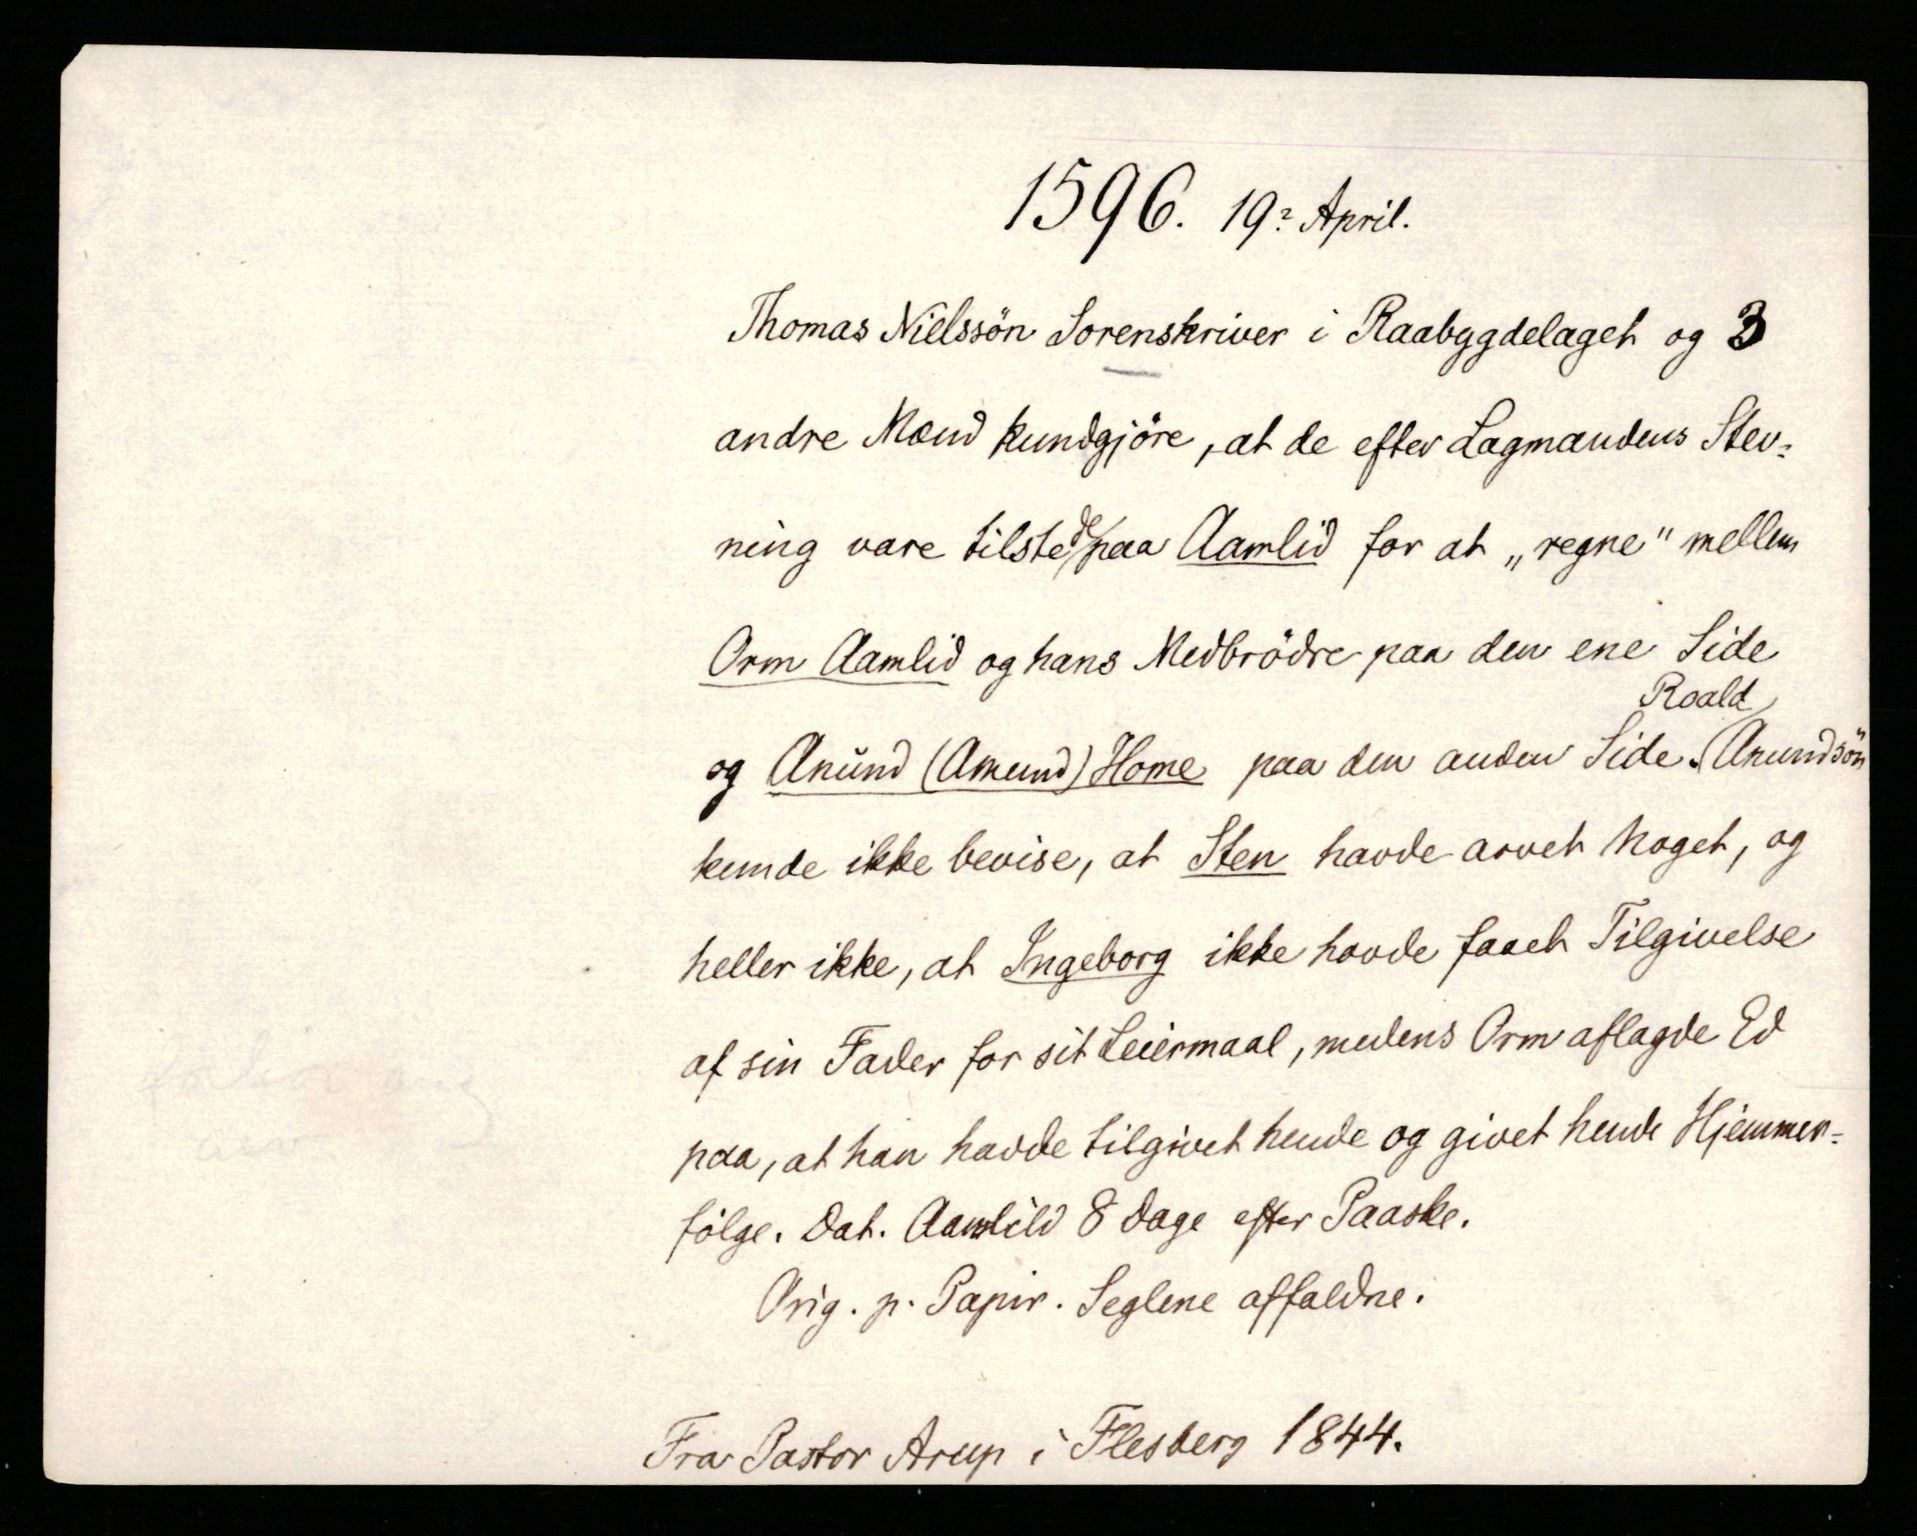 1596. 19? April.
Thomas Nielssön Sorenskriver i Raabygdelaget og 3
andre Mænd kundgjöre, at de efter Lagmandens Stev-
ning vare tilstede paa Aamlid for at „regne" mellem
Orm Aamlid og hans Medbrödre paa den ene Side
og Anund (Amund) Home paa den anden Side. Roald Anundsön
kunde ikke bevise, at Sten havde arvet noget, og
heller ikke, at Ingeborg ikke havde faaet Tilgivelse
af sin Fader for sit Leiermaal, medens Orm aflagde Ed
paa, at han havde tilgivet hende og givet hende Hjemmer-
fölge. Dat. Aamlild 8 Dage efter Paaske.
Orig. p. Papir. Seglene affaldne.
Fra Pastor Arup i Flesberg 1844.